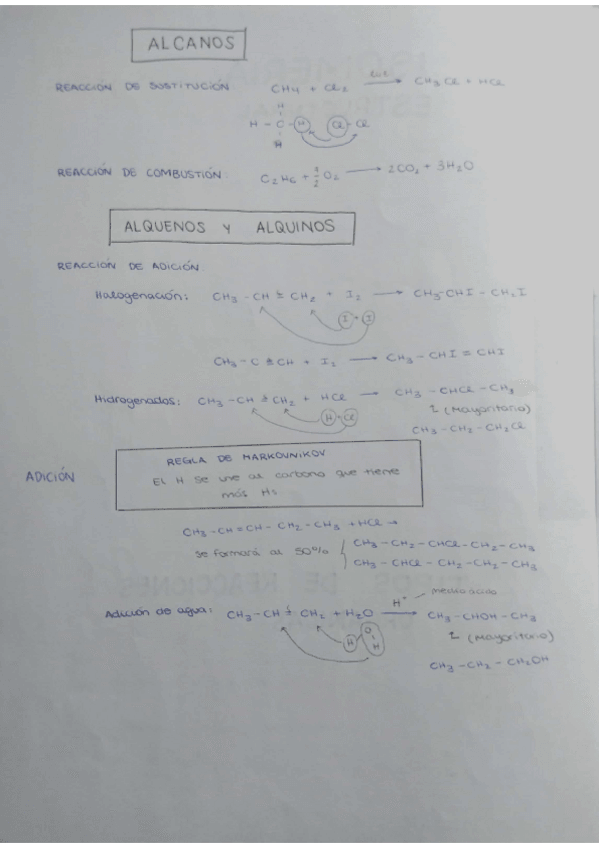 ALCANOS
REACCIÓN DE SUSTITUCIÓN CH4 + Cl2 luz → CH3Cl + HCl
H
H - C - H Cl - Cl
H
REACCIÓN DE COMBUSTIÓN: C2H6 + 7/2 O2 → 2CO2 + 3H2O
ALQUENOS y ALQUINOS
REACCIÓN DE ADICIÓN
Halogenación: CH3 - CH = CH2 + I2 → CH3-CHI - CH2I
I - I
CH3 - C ≡ CH + I2 → CH3 - CHI = CHI
Hidrogenados: CH3 - CH = CH2 + HCl → CH3 - CHCl - CH3
H - Cl (Mayoritario)
CH3 - CH2 - CH2Cl
REGLA DE MARKOVNIKOV
ADICIÓN
El H se une al carbono que tiene
más Hs
CH3 - CH = CH - CH2 - CH3 + HCl →
se formará al 50% CH3 - CH2 - CHCl - CH2 - CH3
CH3 - CHCl - CH2 - CH2 - CH3
H+ medio ácido
Adición de agua: CH3 - CH = CH2 + H2O → CH3 - CHOH - CH3
H O H (Mayoritario)
CH3 - CH2 - CH2OH